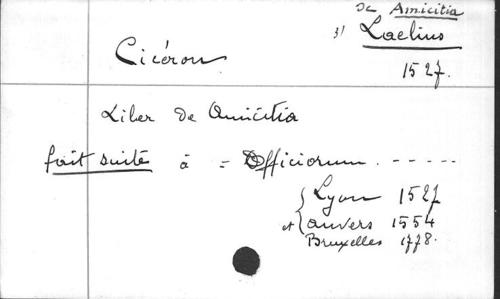 De Amicitia
3) Laelius
Cicéron
1527.
Liber de Amicitia
fait suite à = Officiorum . - - - - -
{ Lyon 1527
et { Anvers 1554
Bruxelles 1778.